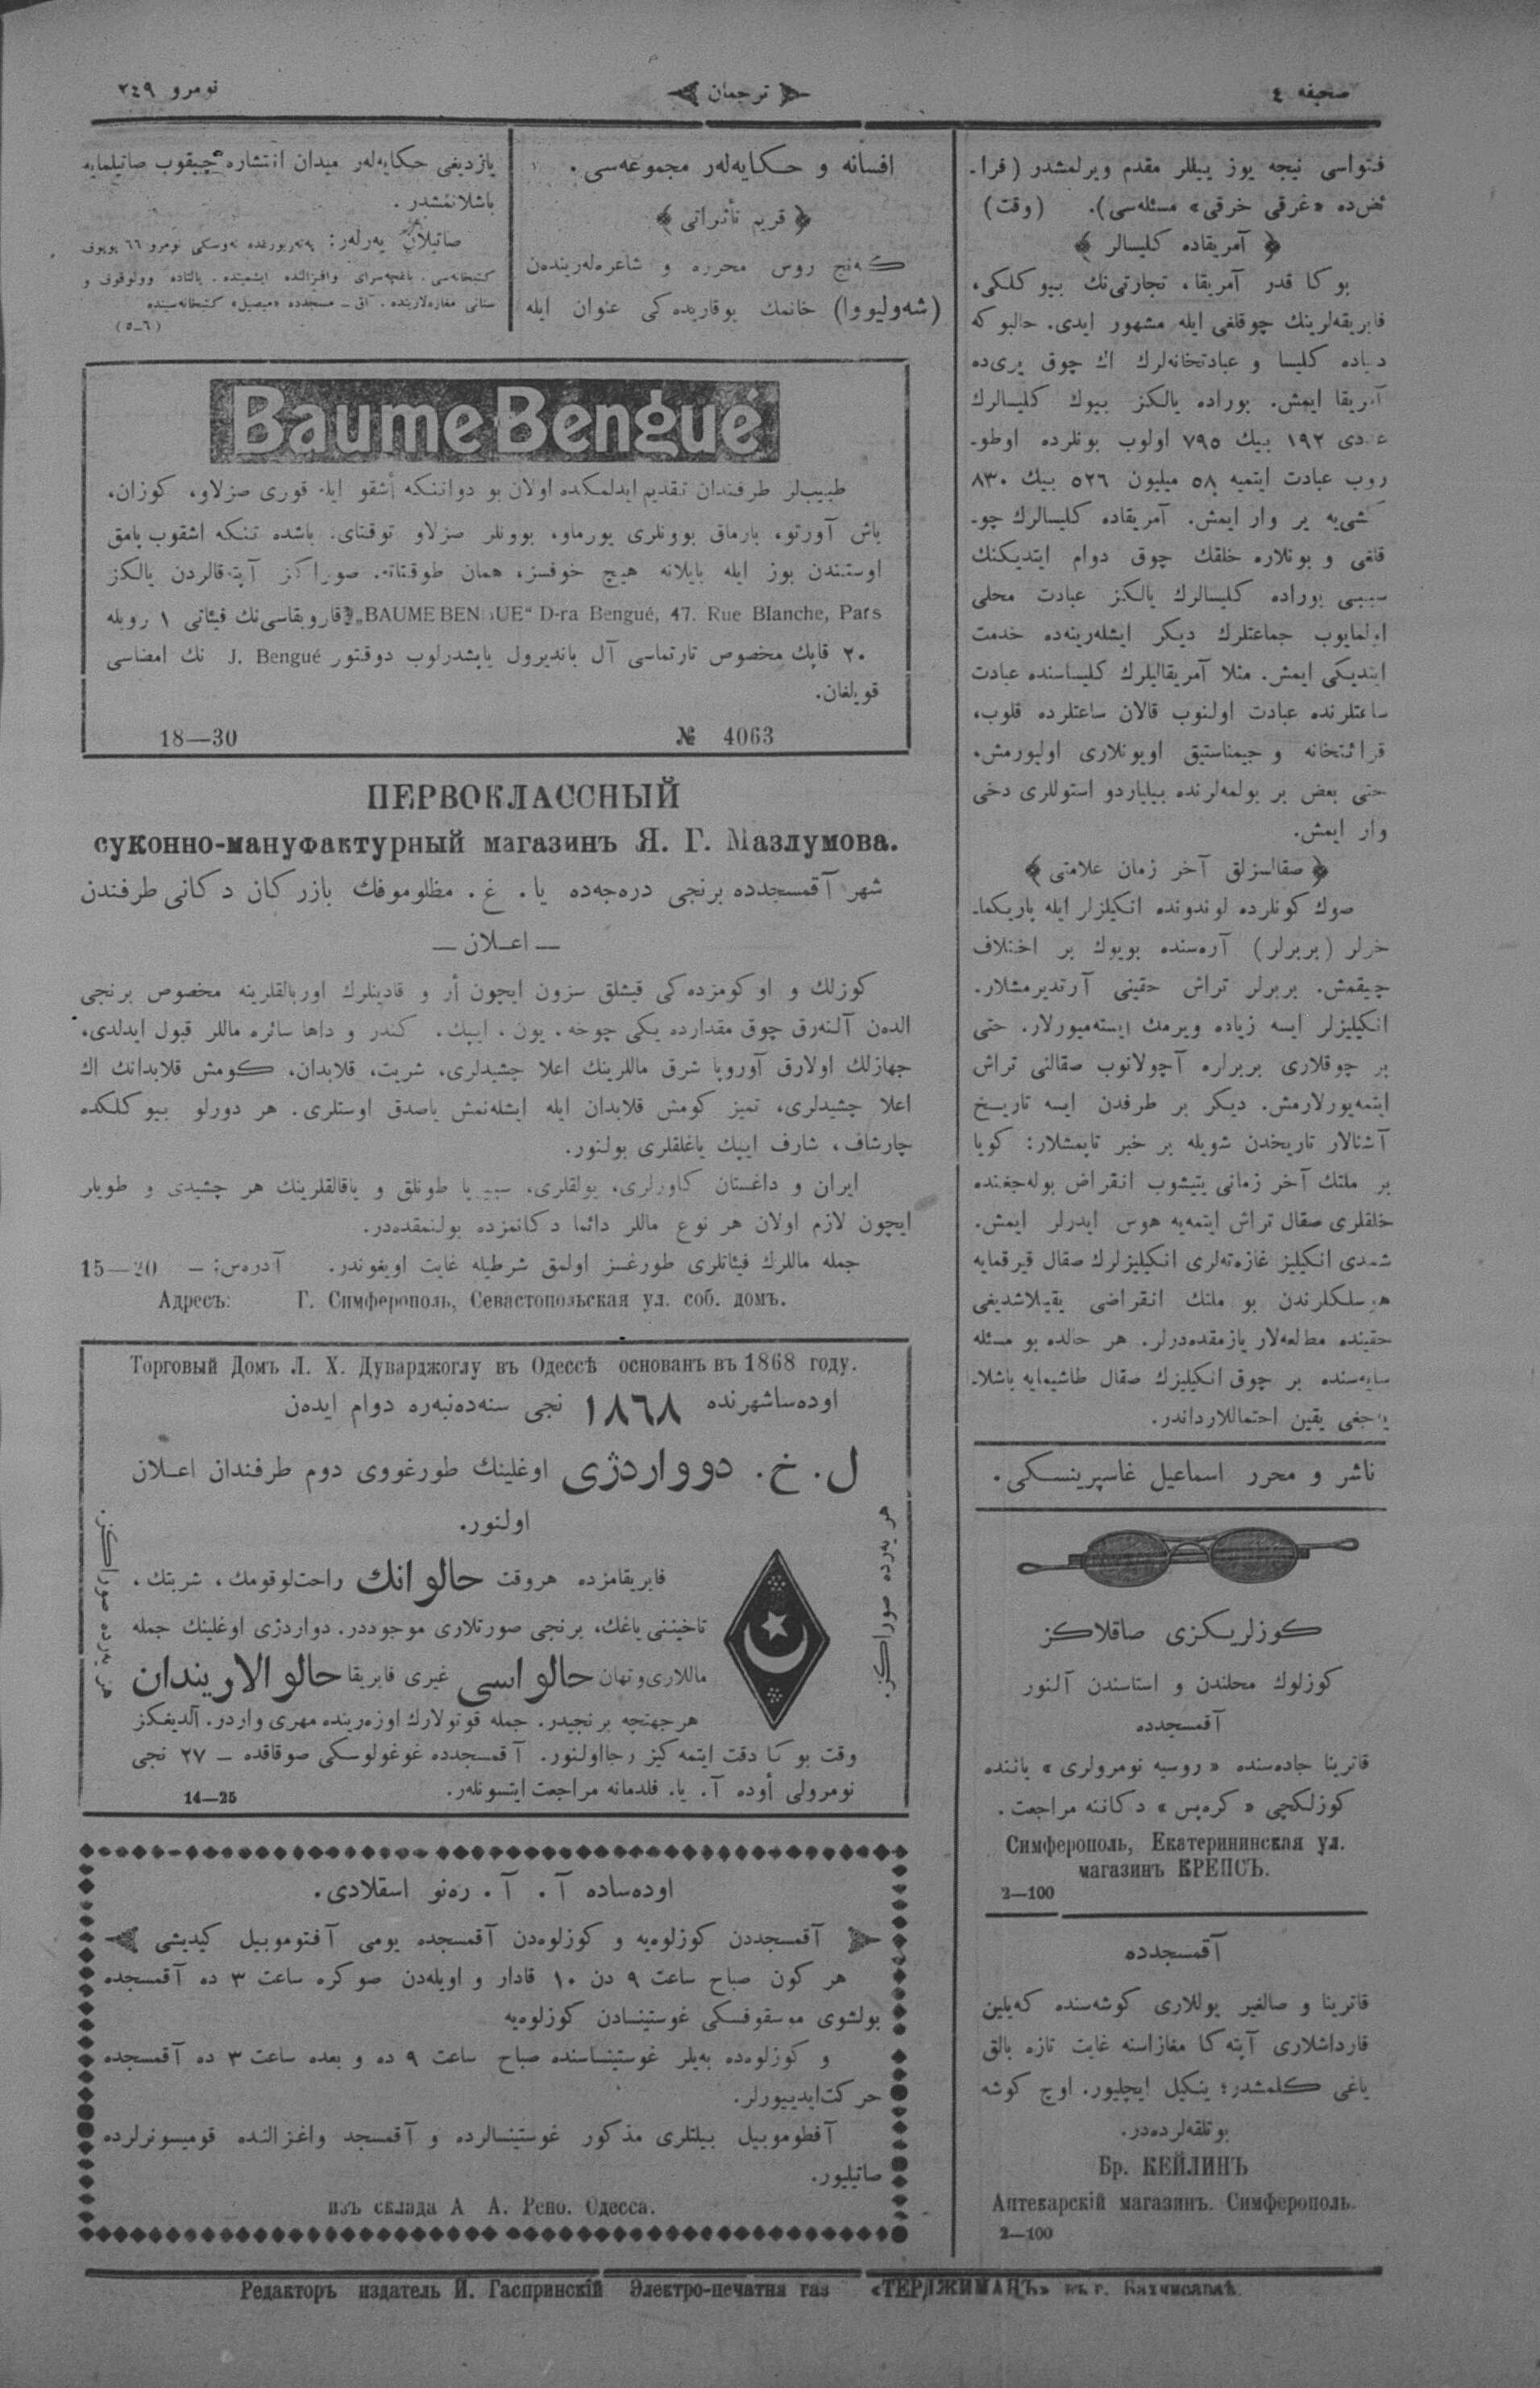 صحیفه ٤
ترجمان
نومرو ٢٤٩
فتواسی نیجه یوز ییللر مقدم ویرلمشدر (فرا-
ئض‌ده «غرقی خرقی» مسئله‌سی). (وقت)
﴿ آمریقاده كلیسالر ﴾
بو كا قدر آمریقا، تجارتی‌نك بیوكلكی،
فابریقه‌لرینك چوقلغی ایله مشهور ایدی. حالبوكه
دنیاده كلیسا و عبادتخانه‌لرك اك چوق یری‌ده
آمریقا ایمش. بوراده یالكز بیوك كلیسالرك
عددی ١٩٢ بیك ٧٩٥ اولوب بونلرده اوطو-
روب عبادت ایتمیه ٥٨ میلیون ٥٢٦ بیك ٨٣٠
كشی‌یه یر وار ایمش. آمریقاده كلیسالرك چو-
قلغی و بونلاره خلقك چوق دوام ایتدیكنك
سببی بوراده كلیسالرك یالكز عبادت محلی
اولمایوب جماعتلرك دیكر ایشله‌رینه‌ده خدمت
ایتدیكی ایمش. مثلا آمریقالیلرك كلیساسنده عبادت
ساعتلرنده عبادت اولنوب قالان ساعتلرده قلوب،
قرائتخانه و جیمناستیق اویونلاری اولیورمش،
حتی بعض بر بولمه‌لرنده بیلیاردو استوللری دخی
وار ایمش.
﴿ صقالسزلق آخر زمان علامتی ﴾
صوك كونلرده لوندونده انكیلزلر ایله پاریكما-
خرلر (بربرلر) آره‌سنده بویوك بر اختلاف
چیقمش. بربرلر تراش حقینی آرتدیرمشلار.
انكیلیزلر ایسه زیاده ویرمك ایسته‌میورلار. حتی
بر چوقلاری بربرلره آچولانوب صقالنی تراش
ایتمه‌یورلارمش. دیكر بر طرفدن ایسه تاریخ
آشنالار تاریخدن شویله بر خبر تاپمشلار: كویا
بر ملتك آخر زمانی یتیشوب انقراض بوله‌جغنده
خلقلری صقال تراش ایتمه‌یه هوس ایدرلر ایمش.
شمدی انكیلیز غازه‌ته‌لری انكیلیزلرك صقال قیرقمایه
هوسلكلرندن بو ملتك انقراضی یقیلاشدیغی
حقینده مطالعه‌لار یازمقده‌درلر. هر حالده بو مسئله
سایه‌سنده بر چوق انكیلیزك صقال طاشیمایه باشلا-
یه‌جغی یقین احتماللارداندر.
ناشر و محرر اسماعیل غاسپرینسكی.
كوزلریكزی صاقلاكز
كوزلوك محلندن و استاسندن آلنور
آقمسجدده
قاترینا جاده‌سنده «روسیه نومرولری» یاننده
كوزلكچی «كره‌پس» دكاننه مراجعت.
Симферополь, Екатерининская ул.
магазинъ КРЕПСЪ.
2—100
آقمسجدده
قاترینا و صالغیر یوللاری كوشه‌سنده كه‌یلین
قارداشلاری آپته‌كا مغازاسنه غایت تازه بالق
یاغی كلمشدر؛ ینكیل ایچلیور. اوچ كوشه
بوتلقه‌لرده‌در.
Бр. КЕЙЛИНЪ
Аптекарскій магазинъ. Симферополь.
2—100
افسانه و حكایه‌لر مجموعه‌سی.
﴿ قریم تأثراتی ﴾
كه‌نج روس محرره و شاعره‌له‌رینده‌ن
(شه‌ولیووا) خانمك یوقاریده‌كی عنوان ایله
یازدیغی حكایه‌لر میدان انتشاره چیقوب صاتیلمایه
باشلانمشدر.
صاتیلان یه‌رله‌ر: په‌ته‌ربورغده نه‌وسكی نومرو ٦٦ پوپوف
كتبخانه‌سی. باغچه‌سرای وافزالنده ایشمیتده. یالتاده وولوقوف و
سنانی مغازه‌لارینده. آق-مسجدده «میصیل» كتبخانه‌سینده
(٥—٦)
Baume Bengué
طبیبلر طرفندان تقدیم ایدلمكده اولان بو دوانتكه أشقو ایله قوری صزلاو، كوزان،
باش آورتو، بارماق بوونلری یورماو، بوونلر صزلاو توقتای. باشده تنكه اشقوب یامق
اوستندن بوز ایله بایلانه هیچ خوفسز، همان طوقتاته. صوراكز آپته‌قالردن یالكز
„BAUME BENGUE“ D-ra Bengué, 47. Rue Blanche, Pars قاروبقاسی‌نك فیئاتی ١ روبله
٢٠ قاپك مخصوص تارتماسی آل باندیرول یاپشدرلوب دوقتور J. Bengué نك امضاسی
قویلغان.
18—30 № 4063
ПЕРВОКЛАССНЫЙ
суконно-мануфактурный магазинъ Я. Г. Мазлумова.
شهر آقمسجدده برنجی دره‌جه‌ده یا. غ. مظلوموفك بازركان دكانی طرفندن
— اعلان —
كوزلك و اوكومزده‌كی قیشلق سزون ایچون أر و قادینلرك اوربالقلرینه مخصوص برنجی
الدن آلنه‌رق چوق مقدارده یكی چوخه. یون. ایپك. كندر و داها سائره ماللر قبول ایدلدی.
جهازلك اولارق آوروپا شرق ماللرینك اعلا چشیدلری، شریت، قلابدان، كومش قلابدانك اك
اعلا چشیدلری، تمیز كومش قلابدان ایله ایشله‌نمش یاصدق اوستلری. هر دورلو بیوكلكده
چارشاف، شارف ایپك یاغلقلری بولنور.
ایران و داغستان كلورلری، یولقلری، سیبیریا طونلق و یاقالقلرینك هر چشیدی و طویلر
ایچون لازم اولان هر نوع ماللر دائما دكانمزده بولنمقده‌در.
جمله ماللرك فیئاتلری طورغسز اولمق شرطیله غایت اویغوندر. آدره‌س: — 15—20
Адресъ: Г. Симферополь, Севастопольская ул. соб. домъ.
Торговый Домъ Л. Х. Дуварджоглу въ Одессѣ основанъ въ 1868 году.
اوده‌ساشهرنده ١٨٦٨ نجی سنه‌ده‌نبه‌ره دوام ایده‌ن
ل. خ. دوواردژی اوغلینك طورغووی دوم طرفندان اعلان
اولنور.
هر یه‌رده صوراكز.
فابریقامزده هروقت حالوانك راحت‌لوقومك، شربتك،
تاخیننی یاغك، برنجی صورتلاری موجوددر. دواردژی اوغلینك جمله
ماللاری‌وتهان حالواسی غیری فابریقا حالوالاریندان
هرجهتچه برنجیدر. جمله قوتولارك اوزه‌رینده مهری واردر. آلدیغكز
وقت بوكا دقت ایتمه‌كیز رجااولنور. آقمسجدده غوغولوسكی صوقاقده — ٢٧ نجی
نومرولی أوده آ. یا. فلدمانه مراجعت ایتسونله‌ر.
14—25
هر یه‌رده صوراكز.
اوده‌ساده آ. آ. ره‌نو اسقلادی.
آقمسجددن كوزلوه‌یه و كوزلوه‌دن آقمسجده یومی آفتوموبیل كیدیشی
هر كون صباح ساعت ٩ دن ١٠ قادار و اویله‌دن صوكره ساعت ٣ ده آقمسجده
بولشوی موسقوفسكی غوستینسادن كوزلوه‌یه
و كوزلوه‌ده به‌یلر غوستینساسنده صباح ساعت ٩ ده و بعده ساعت ٣ ده آقمسجده
حركت‌ایدییورلر.
آفطوموبیل بیلتلری مذكور غوستینسالرده و آقمسجد واغزالنده قومیسونرلرده
صاتیلیور.
изъ склада А А. Рено. Одесса.
Редакторъ издатель И. Гаспринскій Электро-печатня газ «ТЕРДЖИМАНЪ» въ г. Бахчисараѣ.